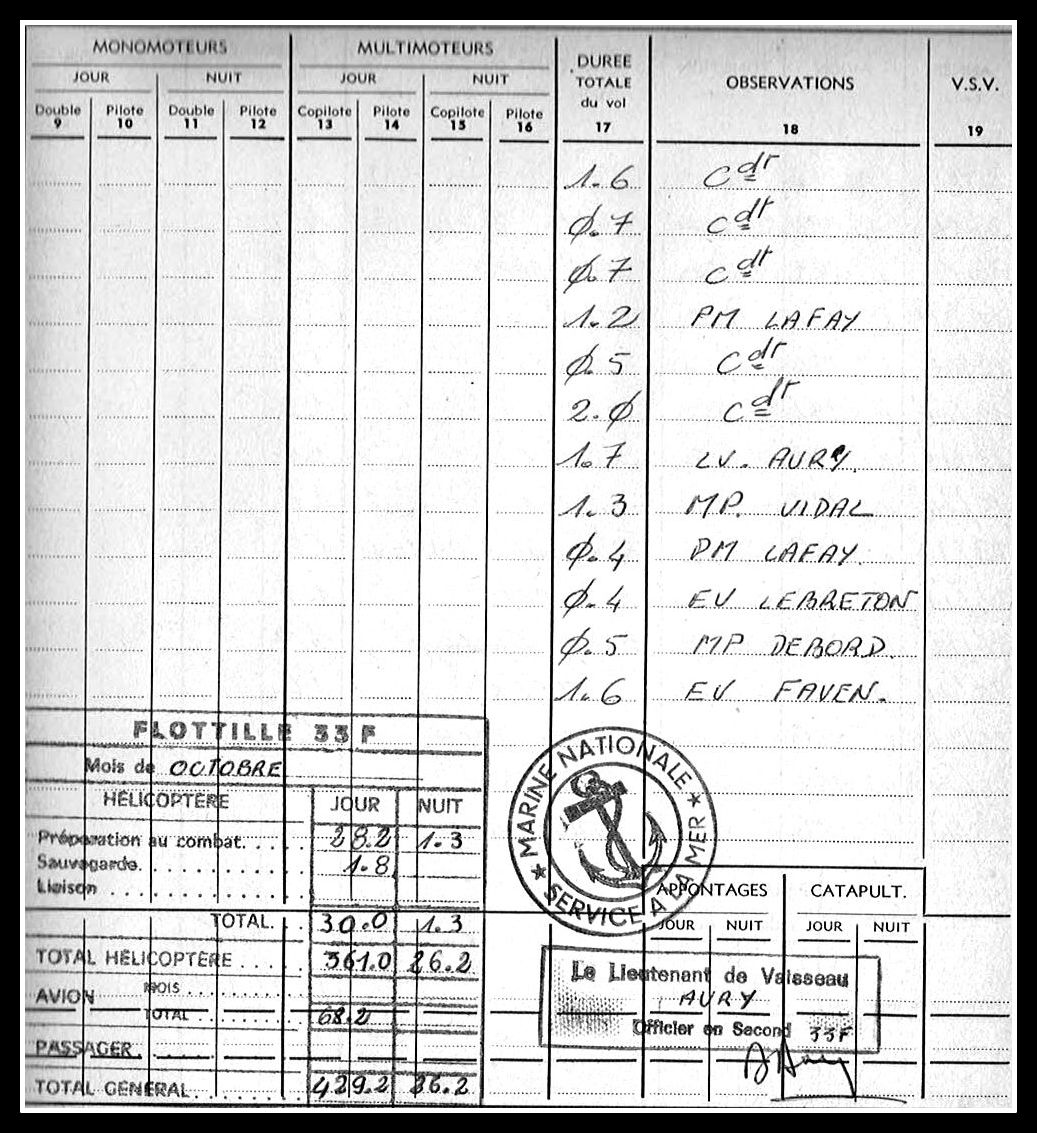 MONOMOTEURS MULTIMOTEURS DURÉE TOTALE du vol OBSERVATIONS V.S.V.
JOUR NUIT JOUR NUIT
Double Pilote Double Pilote Copilote Pilote Copilote Pilote
9 10 11 12 13 14 15 16 17 18 19
1.6 Cdt
0.7 Cdt
0.7 Cdt
1.2 PM LAFAY
0.5 Cdt
2.0 Cdt
1.7 LV. AURY.
1.3 MP. VIDAL
0.4 PM LAFAY.
0.4 EV LEBRETON
0.5 MP DEBORD.
1.6 EV FAVEN.
FLOTTILLE 33 F
Mois de OCTOBRE
HÉLICOPTÈRE JOUR NUIT
Préparation au combat. 28.2 1.3
Sauvegarde. 1.8
Liaison
TOTAL. 30.0 1.3
TOTAL HÉLICOPTÈRE 361.0 26.2
AVION MOIS
TOTAL 68.2
PASSAGER.
TOTAL GÉNÉRAL. 429.2 26.2
MARINE NATIONALE
SERVICE A LA MER
APPONTAGES CATAPULT.
JOUR NUIT JOUR NUIT
Le Lieutenant de Vaisseau
AURY
Officier en Second 33F